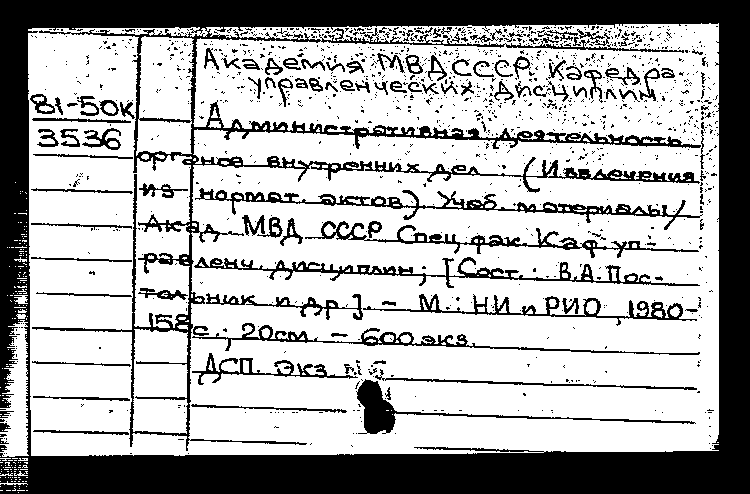 Академия МВД СССР. Кафедра
управленческих дисциплин.
81-50к
3536
Административная деятельность
органов внутренних дел : (Извлечения
из нормат. актов). Учеб. материалы/
Акад. МВД СССР Спец. фак. Каф. уп-
равленч. дисциплин; [Сост.: В.А. Пос-
тольник и др.]. - М.: НИ и РИО, 1980-
158с.; 20см. - 600экз.
ДСП. Экз.